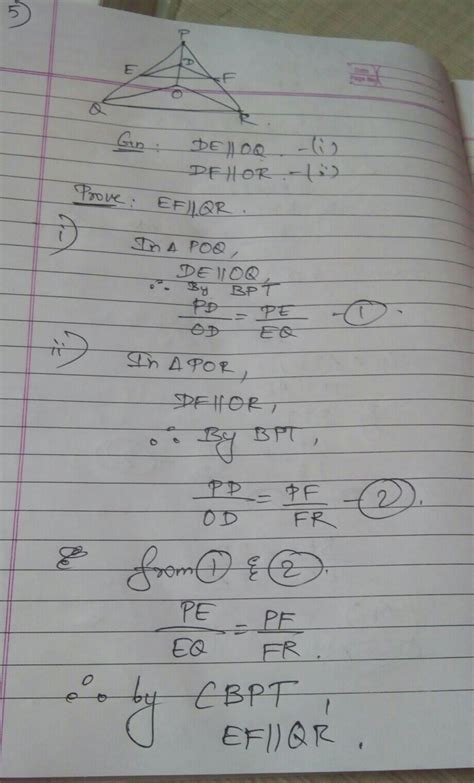 5)
P
E D F
O
Q R
Gvn: DE||OQ -(i)
DF||OR -(i)
Prove: EF||QR.
i) In △ POQ,
DE||OQ,
∴ By BPT
PD/OD = PE/EQ -①.
ii) In △ POR,
DF||OR,
∴ By BPT,
PD/OD = PF/FR -②.
from ① & ②.
PE/EQ = PF/FR.
∴ by CBPT,
EF||QR.